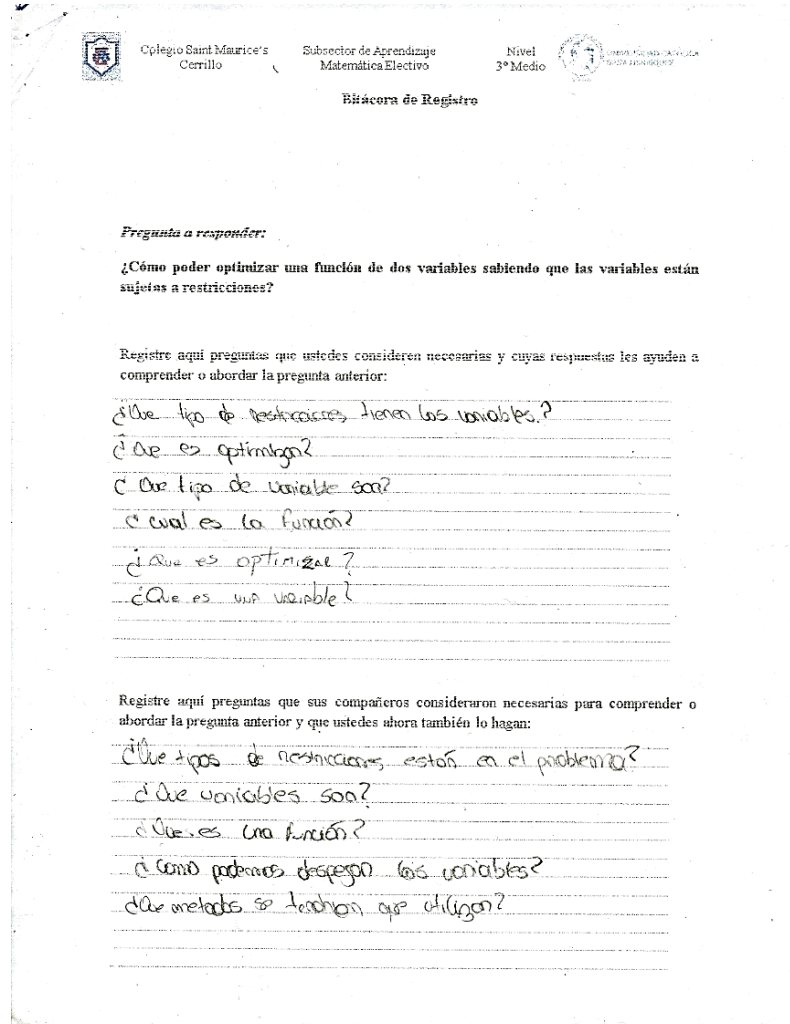 Colegio Saint Maurice's
Cerrillo
Subsector de Aprendizaje
Matemática Electivo
Nivel
3° Medio
Bitácora de Registro
Pregunta a responder:
¿Cómo poder optimizar una función de dos variables sabiendo que las variables están
sujetas a restricciones?
Registre aquí preguntas que ustedes consideren necesarias y cuyas respuestas les ayuden a
comprender o abordar la pregunta anterior:
¿Que tipo de restricciones tienen las variables?
¿Que es optimizar?
¿Que tipo de variable son?
¿cual es la función?
¿Que es optimizar?
¿Que es una variable?
Registre aquí preguntas que sus compañeros consideraron necesarias para comprender o
abordar la pregunta anterior y que ustedes ahora también lo hagan:
¿Que tipos de restricciones están en el problema?
¿Que variables son?
¿Que es una función?
¿Como podemos despejar las variables?
¿Que metodos se tendrian que utilizar?